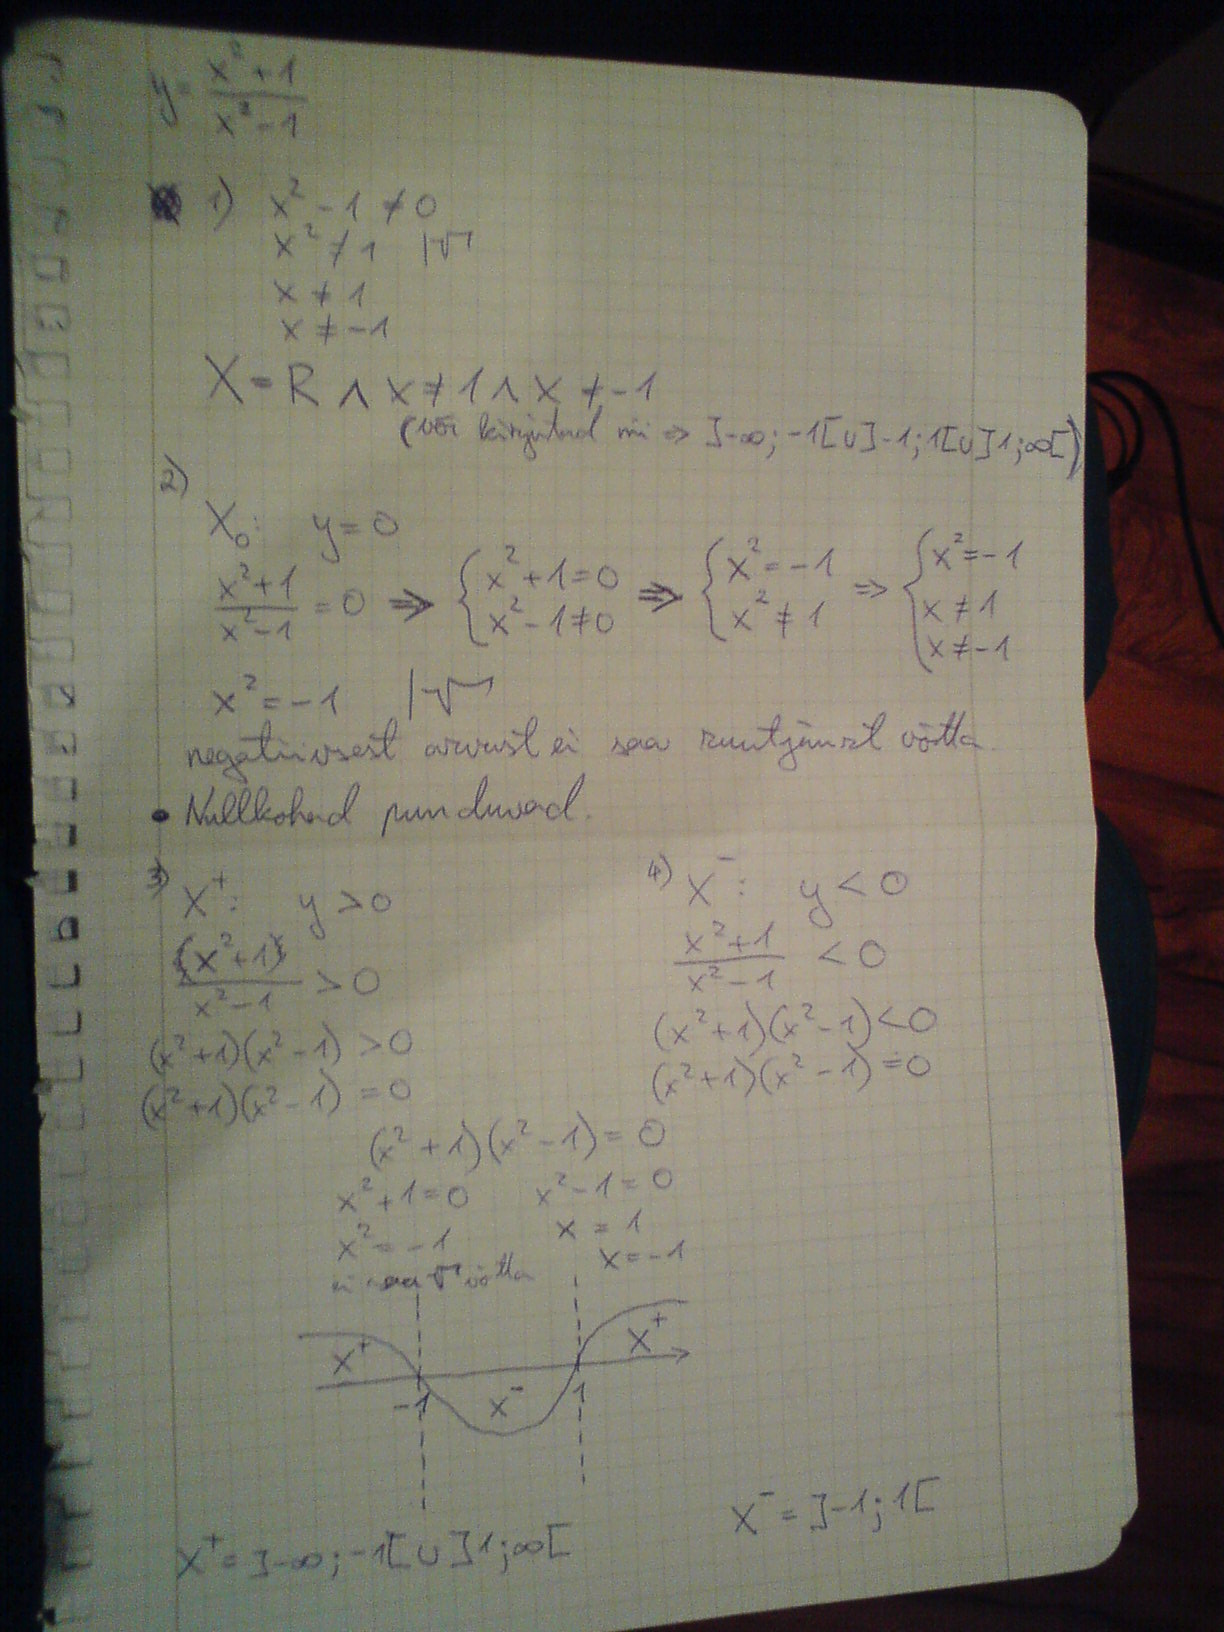 y = (x²+1)/(x²-1)
1) x² - 1 ≠ 0
x² ≠ 1 |√
x ≠ 1
x ≠ -1
X = R ∧ x ≠ 1 ∧ x ≠ -1
(või kirjutad nii => ]-∞; -1[∪]-1; 1[∪]1; ∞[)
2)
X₀: y = 0
(x²+1)/(x²-1) = 0 => { x²+1=0 x²-1≠0 => { x²=-1 x²≠1 => { x²=-1 x≠1 x≠-1
x² = -1 |√
negatiivsest arvust ei saa ruutjuurt võtta
• Nullkohad puuduvad.
3) X⁺: y > 0
(x²+1)/(x²-1) > 0
(x²+1)(x²-1) > 0
(x²+1)(x²-1) = 0
4) X⁻: y < 0
(x²+1)/(x²-1) < 0
(x²+1)(x²-1) < 0
(x²+1)(x²-1) = 0
(x²+1)(x²-1) = 0
x²+1=0 x²-1=0
x² = -1 x = 1
ei saa √ võtta x = -1
X⁺ X⁺
-1 X⁻ 1
X⁻ = ]-1; 1[
X⁺ = ]-∞; -1[∪]1; ∞[